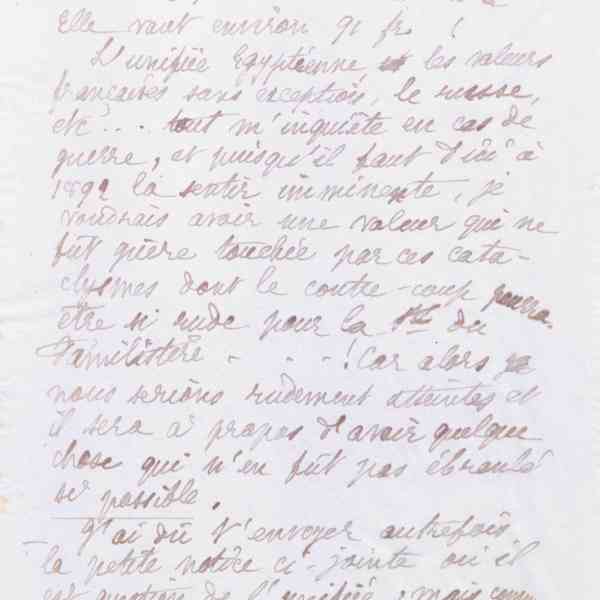 Elle vaut environ 91 fr. !
L'unifiée Egyptienne, et les valeurs
françaises sans exception, le russe,
etc... tout m'inquiète en cas de
guerre, et puisqu'il faut d'ici à
1892 la sentir imminente, je
voudrais avoir une valeur qui ne
fût guère touchée par ces cata-
clysmes dont le contre-coup pourra
être si rude pour la Sté du
Familistère - - - ! Car alors
nous serions rudement atteintes et
il sera à propos d'avoir quelque
chose qui n'en fût pas ébranlé
si possible.
J'ai dû t'envoyer autrefois
la petite notice ci-jointe où il
est question de l'unifiée ; mais comme